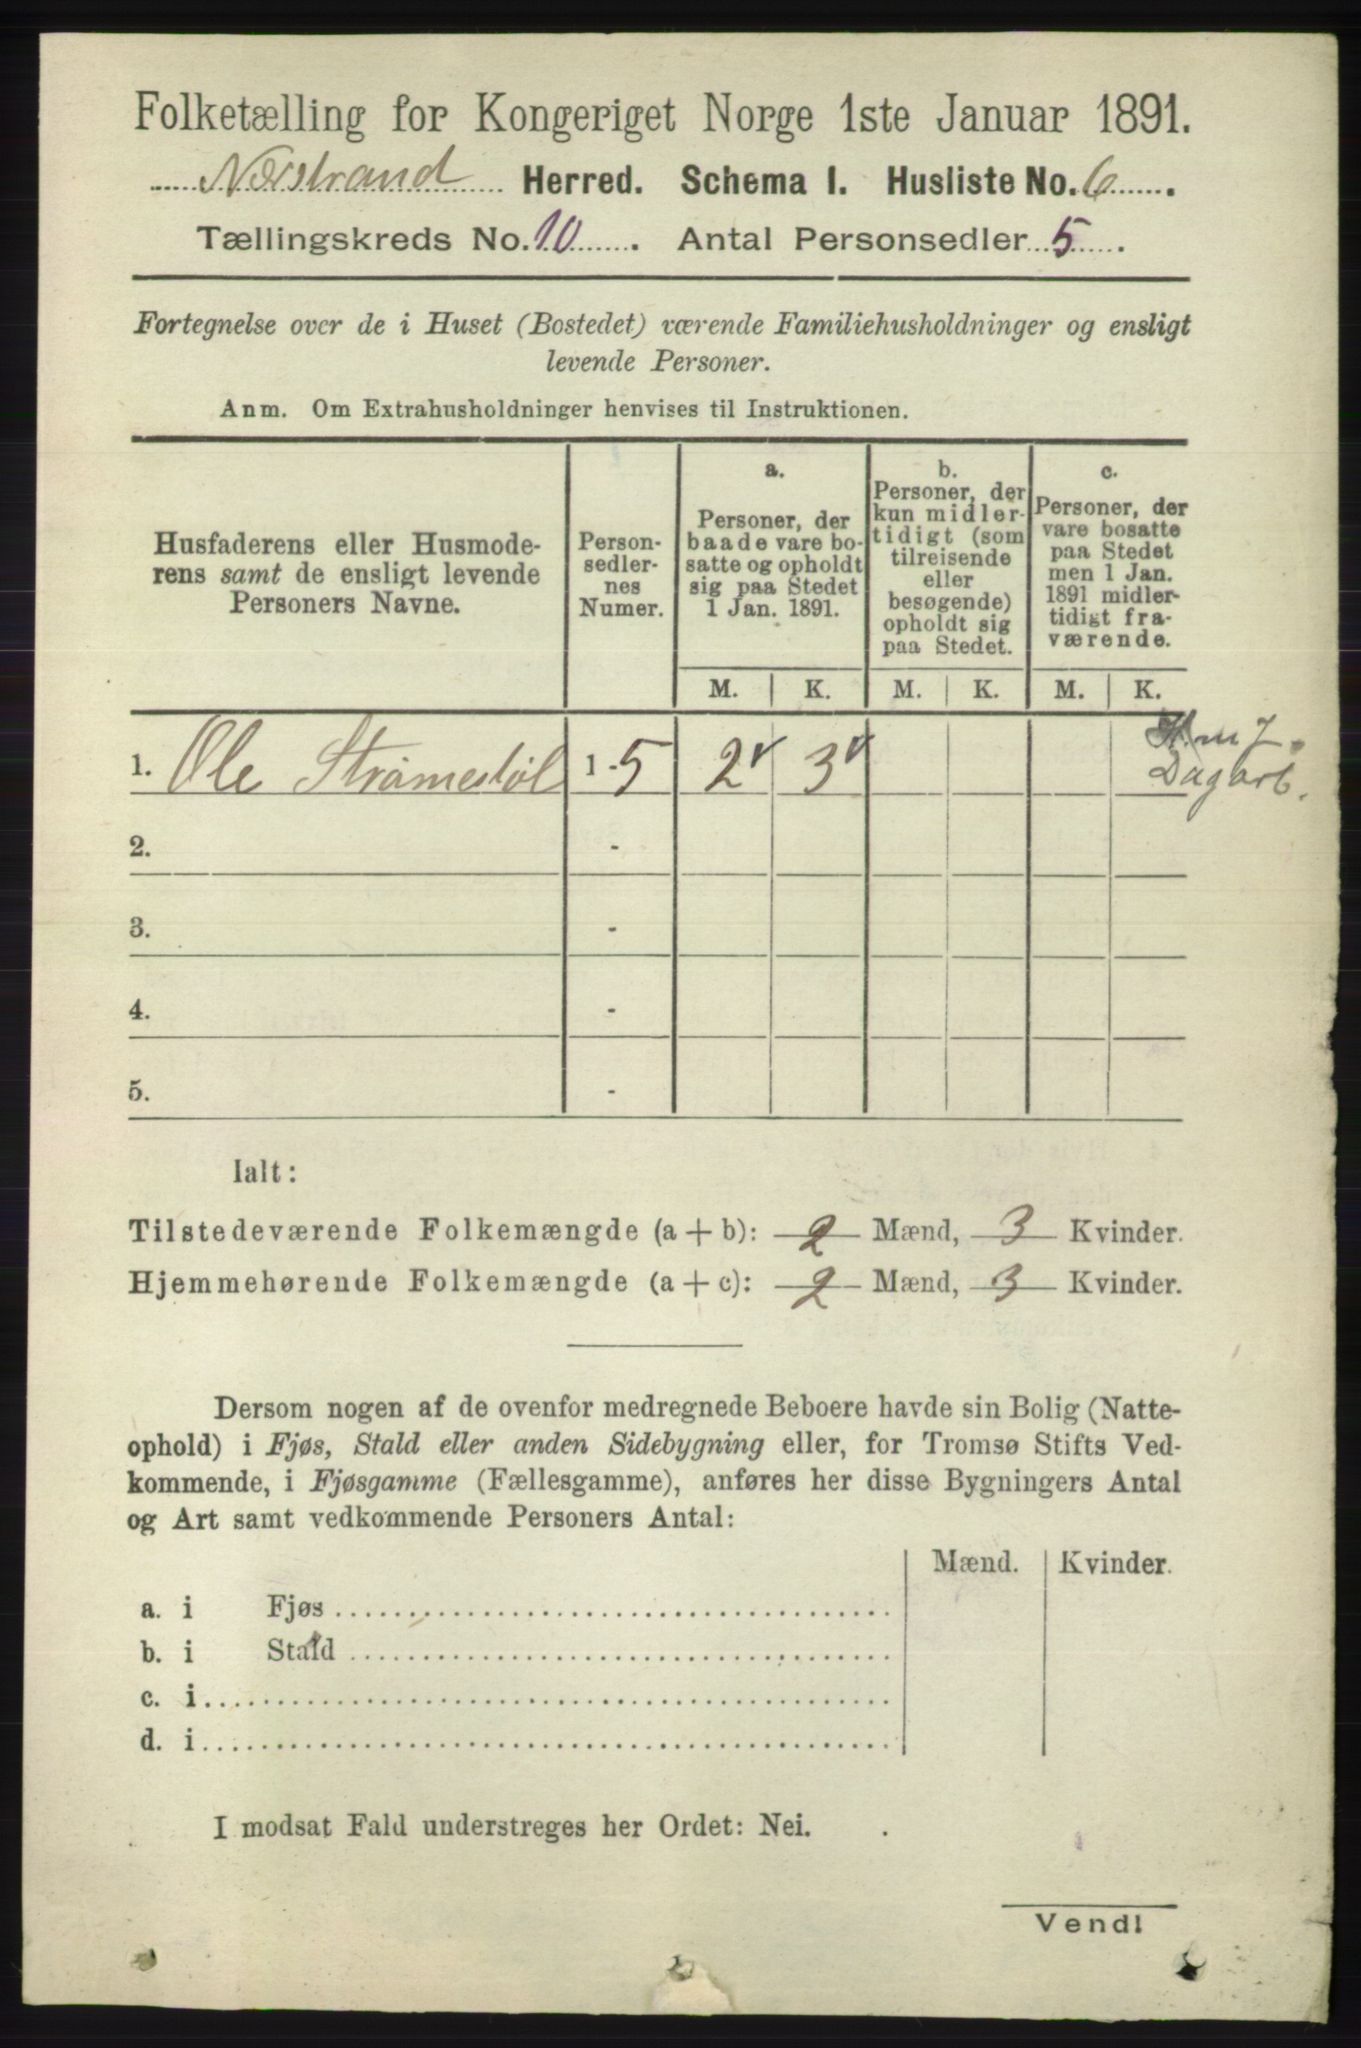 Folketælling for Kongeriget Norge 1ste Januar 1891.
Nærstrand Herred. Schema I. Husliste No. 6.
Tællingskreds No. 10. Antal Personsedler 5.
Fortegnelse over de i Huset (Bostedet) værende Familiehusholdninger og ensligt
levende Personer.
Anm. Om Extrahusholdninger henvises til Instruktionen.
Husfaderens eller Husmode-
rens samt de ensligt levende
Personers Navne.
Person-
sedler-
nes
Numer.
a.
Personer, der
baade vare bo-
satte og opholdt
sig paa Stedet
1 Jan. 1891.
b.
Personer, der
kun midler-
tidigt (som
tilreisende
eller
besøgende)
opholdt sig
paa Stedet.
c.
Personer, der
vare bosatte
paa Stedet
men 1 Jan.
1891 midler-
tidigt fra-
værende.
M. K. M. K. M. K.
1. Ole Stråmestøl 1 - 5 2 3
H. m J.
Dagarb.
2. -
3. -
4. -
5. -
Ialt:
Tilstedeværende Folkemængde (a + b): 2 Mænd, 3 Kvinder.
Hjemmehørende Folkemængde (a + c): 2 Mænd, 3 Kvinder.
Dersom nogen af de ovenfor medregnede Beboere havde sin Bolig (Natte-
ophold) i Fjøs, Stald eller anden Sidebygning eller, for Tromsø Stifts Ved-
kommende, i Fjøsgamme (Fællesgamme), anføres her disse Bygningers Antal
og Art samt vedkommende Personers Antal:
Mænd. Kvinder.
a. i Fjøs
b. i Stald
c. i
d. i
I modsat Fald understreges her Ordet: Nei.
Vend!